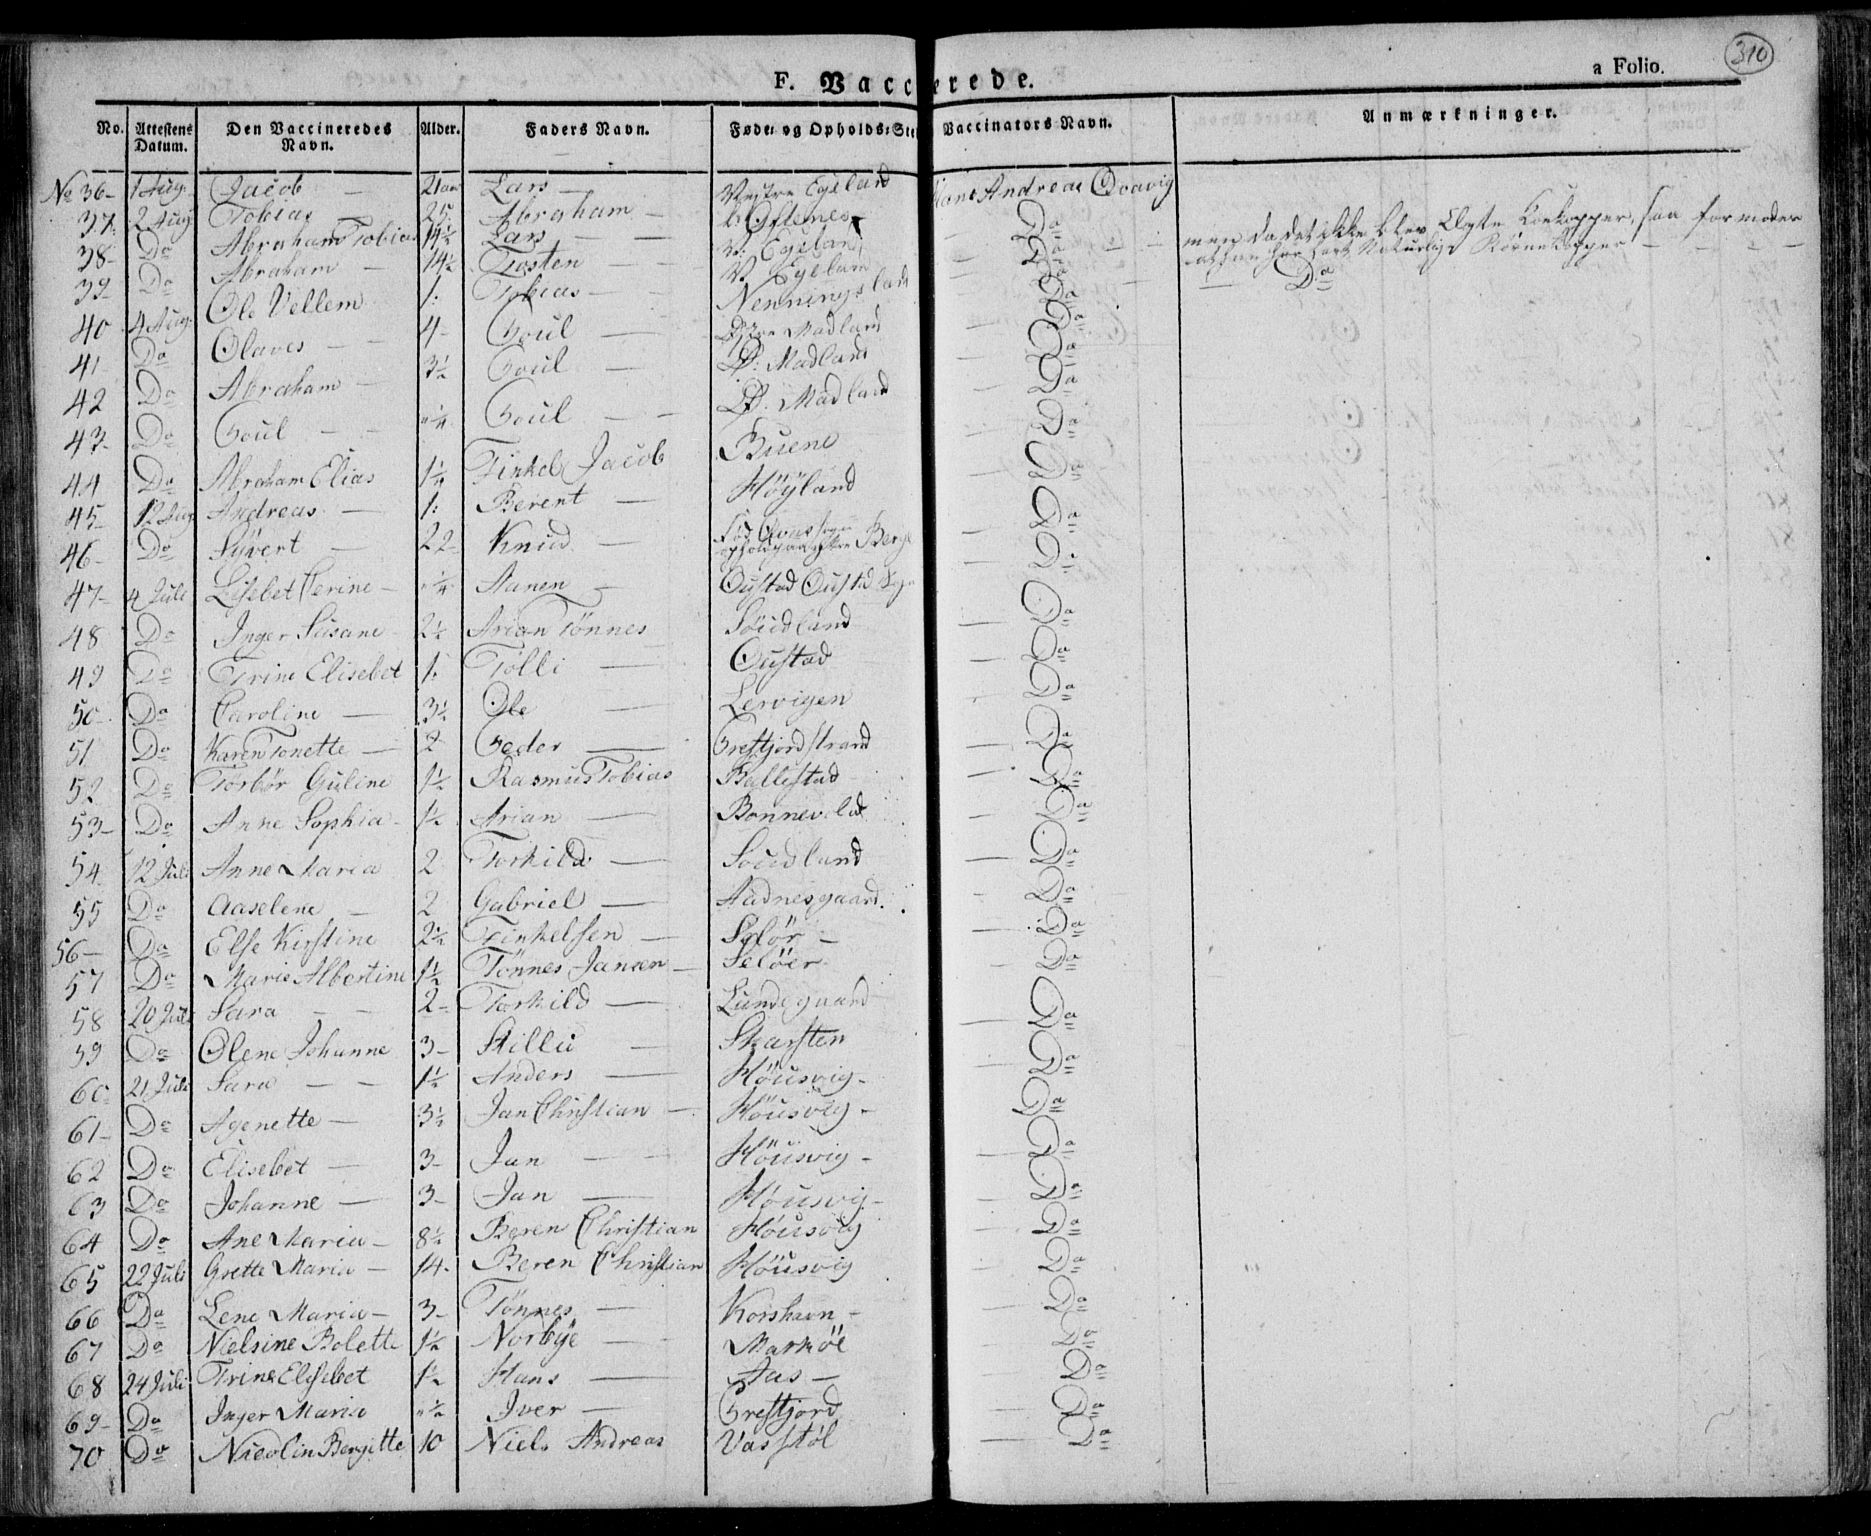 310
F. Vaccinerede. a Folio.
No. Attestens Datum. Den Vaccineredes Navn. Alder. Faders Navn. Føde- og Opholds-Sted Vaccinators Navn. Anmærkninger.
No 36- 1 Aug. Jacob - 21 aar Lars - Vestre Egeland Hans Andreas
37. 2 Aug Tobias 25. Abraham - Oftenes Do men da det ikke blev Ægte Koekopper, saa formoder
38- Do Abraham Tobias 14½ Lars - V. Egeland Do at han har havt Naturlige
39- Do Abraham - 14½ Tosten - V. Egeland Do Do
40 4 Aug. Ole Vellem 1. Tobias - Nenningsland Do
41 Do Olaves - 4- Poul - Madland Do
42 Do Abraham - 3½ Poul - Ø. Madland Do
43- Do Poul - "¼ Poul - Ø. Madland Do
44 Do Abraham Elias 1¼ Tinkel Jacob Buene Do
45- 12 Aug Andreas - 1. Berent - Höÿland Do
46- Do Sÿvert - 22- Knud - Do
47- 4 Juli Lisebet Perine - "¼ Aanen - Oustad Oustad Sogn Do
48 Do Inger Susane 2½ Arian Tönnes Söudland Do
49 Do Trine Elisebet 1. Tölli - Oustad Do
50- Do Caroline - 3½ Ole - Lervigen Do
51 Do Karen Tonette - 2 Peder - Prestfjord strand Do
52 Do Torbör Guline 1½ Rasmus Tobias Ballestad Do
53- Do Anne Sophia - 1½ Arian - Bonnevold Do
54 12 Juli Anne Maria 2 Torkild - Soudland Do
55 Do Aaselene - 2 Gabriel - Aadnesgaard. Do
56- Do Else Kirstine 2½ Tinkelsen - Selör - Do
57 Do Marie Albertine 1½ Tönnes Jansen - Selöer Do
58 20 Juli Sara - - 2- Torkild - Lundegaard Do
59 Do Olene Johanne 3- Skillu - Skarsten Do
60- 21 Juli Sara - - 1½ Anders - Höusvig - Do
61- Do Agenette - 3½ Jan Christian - Höusvig - Do
62 Do Elisebet - 3- Jan - - Höusvig - Do
63 Do Johanne - 3- Jan - Höusvig - Do
64 Do Ane Maria - 8½ Beren Christian Höusvig Do
65 22 Juli Grette Maria - 14- Beren Christian Höusvig Do
66 Do Lene Maria - 3- Tönnes - Korshavn - Do
67 Do Nielsine Bolette 1½ Norbÿe - Markøe Do
68 24 Juli Trine Elisebet 1½ Hans - Aas - Do
69- Do Inger Maria "½ Iver - Prestfjord Do
70 Do Nicolin Bergitte 10 Niels Andreas Vasstöl Do